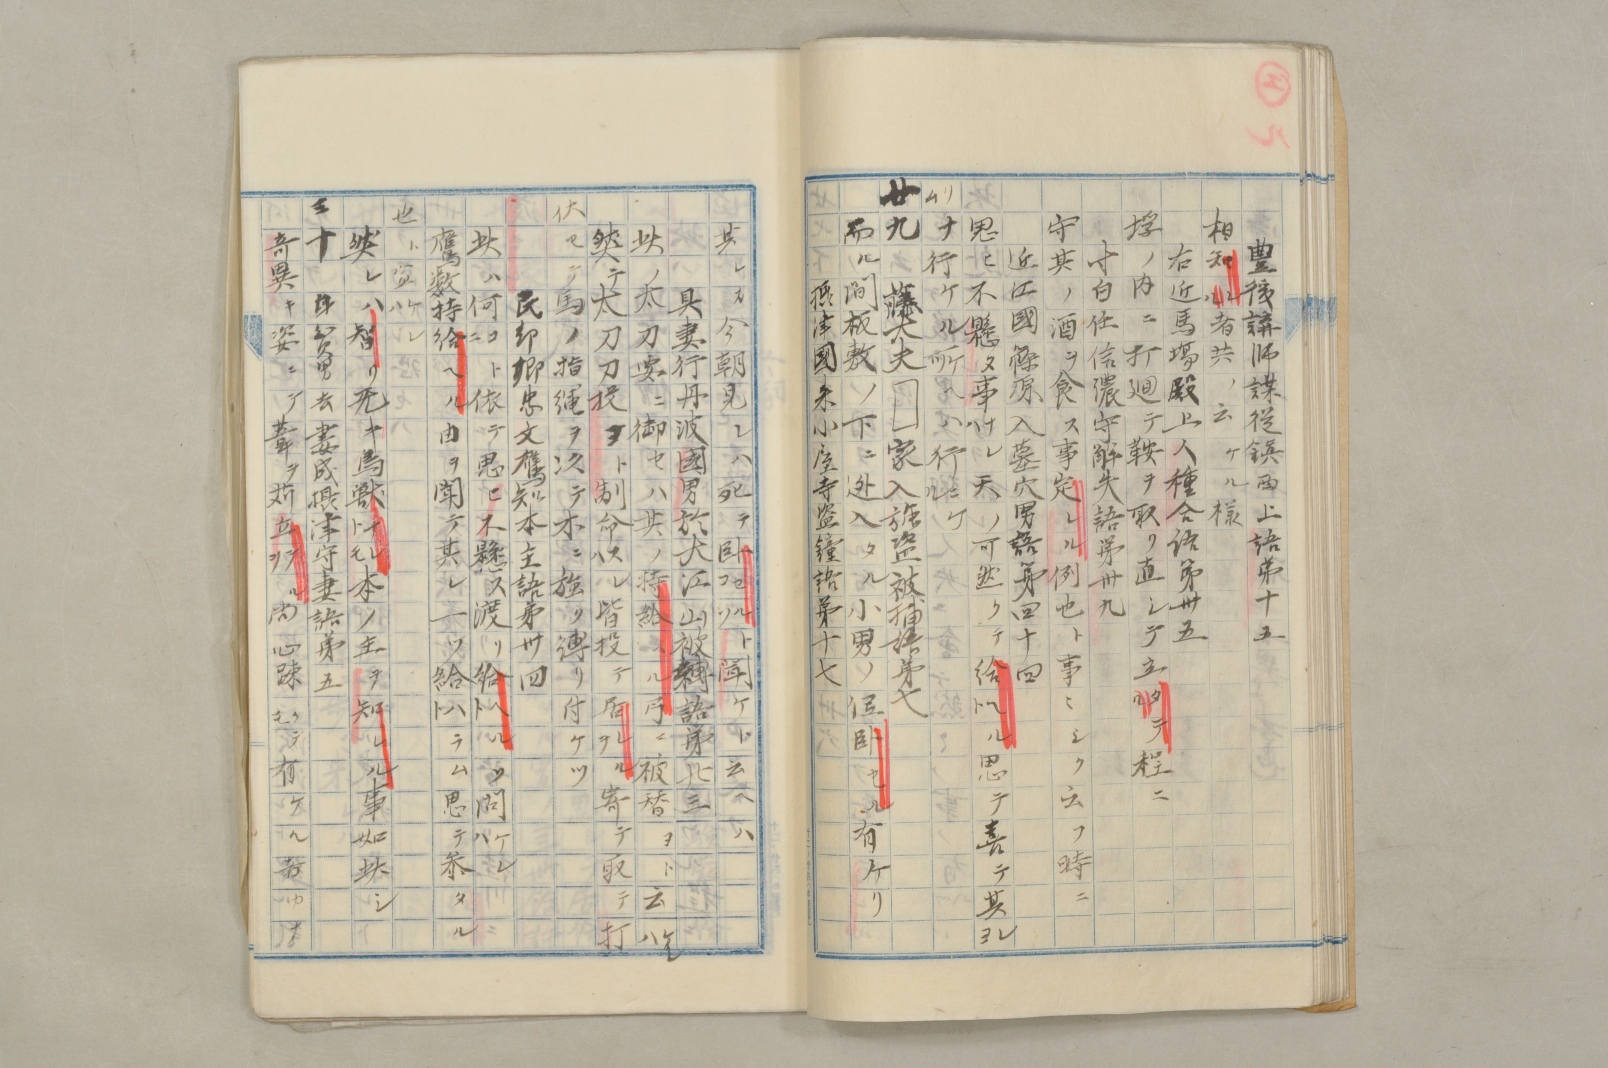 ル
豊後講師謀従鎮西上語第十五
相知ル者共ノ云ケル様
右近馬場殿上人種合語第卅五
埒ノ内ニ打廻テ鞍ヲ取リ直シテ立タテル程ニ
寸白任信濃守解失語第卅九
守其ノ酒ヲ食ス事定レル例也ト事ミシク云フ時ニ
近江國篠原入墓穴男語第四十四
思ヒ不懸ヌ事ナレハ天ノ可然クテ給ヘルト思テ喜テ其ヨレ
廿九 藤大夫 家入強盗被捕語第七
而ル間板敷ノ下ニ迯入タル小男ノ低臥セル有ケリ
摂津國来小屋寺盗鐘語第十七
其レカ今朝見レハ死テ臥セルト聞ケト云ヘハ
具妻行丹波國男於大江山被縛語第廿三
此ノ太刀要ニ御セハ其ノ持給ヘル弓ニ被替ヨト云ハ
然テ太刀刀投ヨト制命スレハ皆投テ居ルヲ寄テ取テ打
伏セテ馬ノ指縄ヲ以テ木ニ強ク縛リ付ケツ
民部卿忠文鷹知本主語第卅四
此ハ何コトニ依テ思ヒ不懸ス渡リ給ヘルト問ケレハ
鷹数持給ヘル由ヲ聞テ其レ一ツ給ハラムト思テ参タル
也ト
然レハ智リ无キ鳥獣ナレトモ本ノ主ヲ知レル事如此シ
三十
身貧男去妻成摂津守妻語第五
奇異キ姿ニテ葦ヲ苅立ル尚